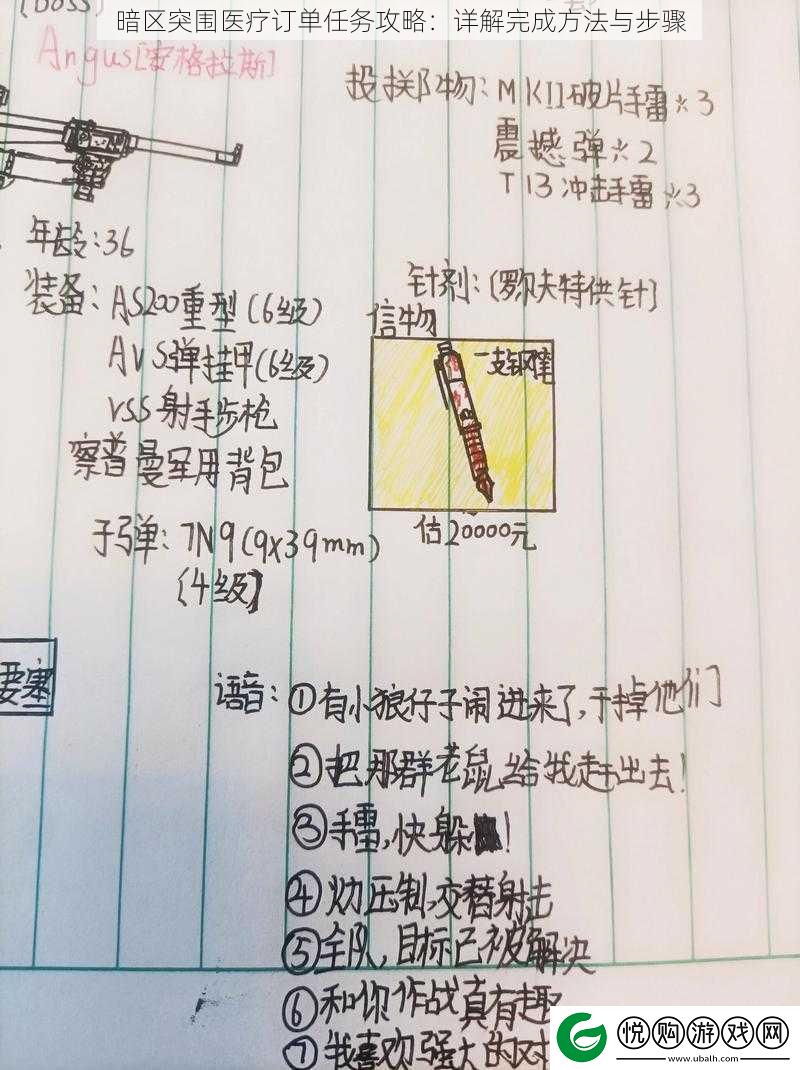 (BOSS)
暗区突围医疗订单任务攻略：详解完成方法与步骤
Angus[安格拉斯]
投掷物：MKII破片手雷×3
震撼弹×2
T13冲击手雷×3
年龄：36
装备：AS200重型(6级)
AVS弹挂甲(6级)
VSS射手步枪
察普曼军用背包
子弹：7N9(9x39mm)
(4级)
针剂：[罗尔夫特供针]
信物
一支钢笔
估20000元
要塞
语音：①有小狼仔子闹进来了，干掉他们
②把那群老鼠给我赶出去！
③手雷，快躲！
④火力压制，交替射击
⑤全队，目标已被解决
⑥和你作战真有趣
⑦我喜欢强大的对
悦购游戏网
www.ubalh.com